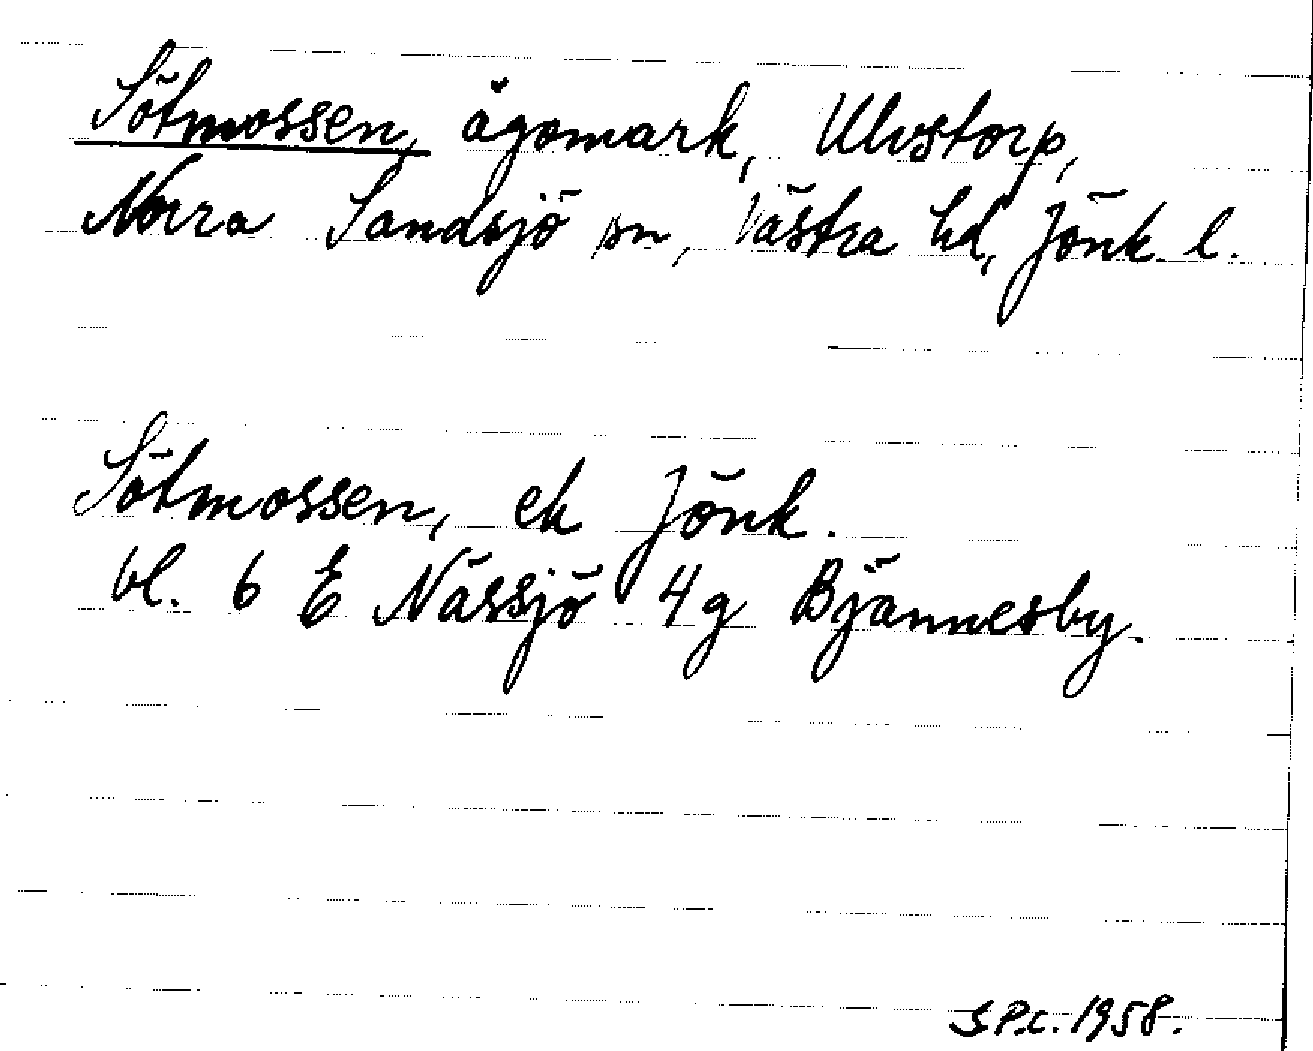 Sötmossen, ägomark, Ulvstorp,
Norra Sandsjö sn, Västra hd, Jönk. l.
Sötmossen, ek Jönk.
bl. 6 E Nässjö 4g Bjännesby.
S.P.c. 1958.